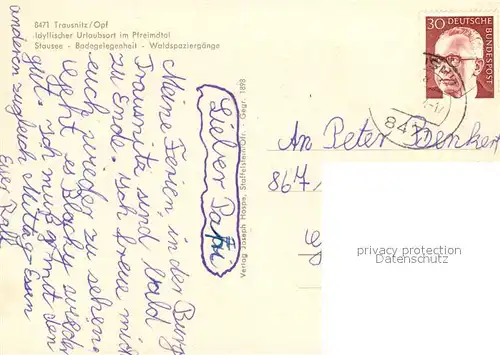 8471 Trausnitz/Opf
Idyllischer Urlaubsort im Pfreimdtal
Stausee - Badegelegenheit - Waldspaziergänge
Lieber Papi
Meine Ferien, in der Burg
Trausnitz sind bald
zu Ende. Ich freue mich
euch wieder zu sehen.
geht es Blacky wieder
gut. Ich muß mit den
anderen zugleich Mittag-Essen
Euer Ralf
Verlag Joseph Hospe, Staffelstein/Ofr. Gegr. 1898
30 DEUTSCHE
BUNDESPOST
8471
An Peter Denker
867
privacy protection
Ansichtskarten-Center.de